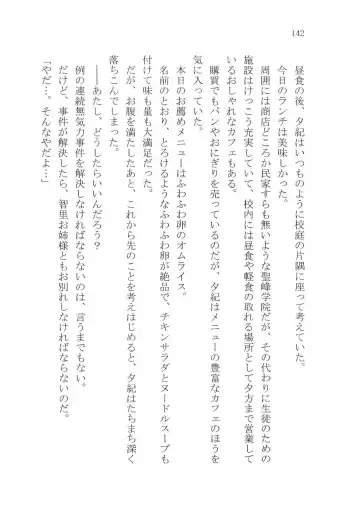 142
昼食の後、夕紀はいつものように校庭の片隅に座って考えていた。
今日のランチは美味しかった。
周囲には商店どころか民家すらも無いような聖峰学院だが、その代わりに生徒のための
施設はけっこう充実していて、校内には昼食や軽食の取れる場所として夕方まで営業して
いるおしゃれなカフェもある。
購買でもパンやおにぎりを売っているのだが、夕紀はメニューの豊富なカフェのほうを
気に入っていた。
本日のお薦めメニューはふわふわ卵のオムライス。
名前のとおり、とろけるようなふわふわ卵が絶品で、チキンサラダとヌードルスープも
付けて味も量も大満足だった。
だが、お腹を満たしたあと、これから先のことを考えはじめると、夕紀はたちまち深く
落ちこんでしまった。
――あたし、どうしたらいいんだろう?
例の連続無気力事件を解決しなければならないのは、言うまでもない。
だけど、事件が解決したら、智里お姉様ともお別れしなければならないのだ。
「やだ…。そんなのやだよ…」